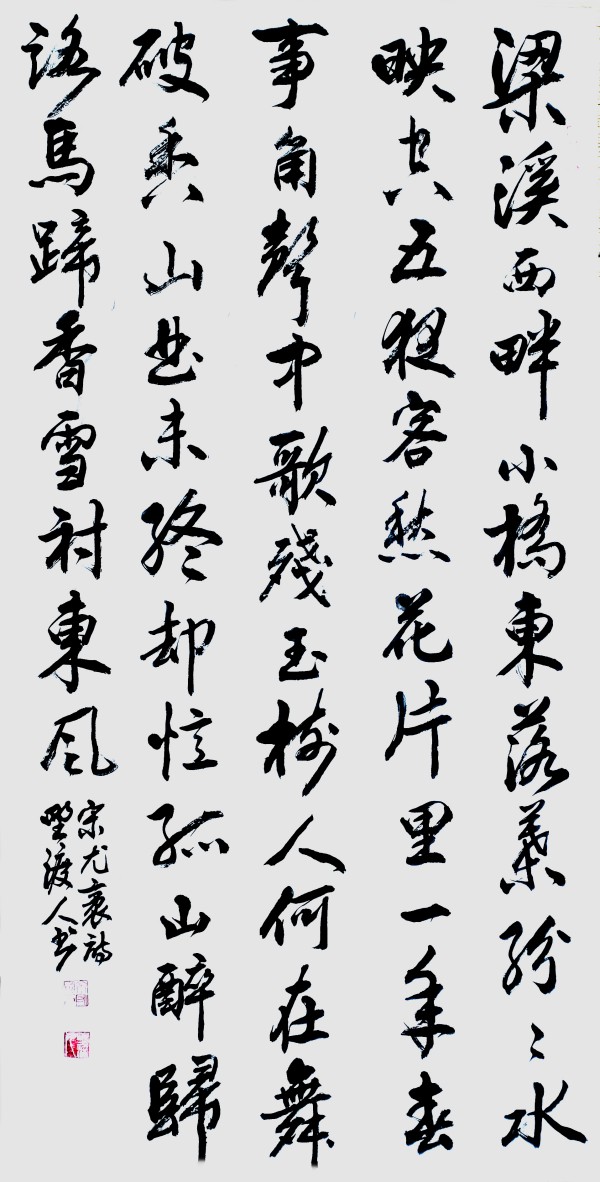 梁溪西畔小橋東落葉紛〻水
映空五夜客愁花片里一年春
事角聲中歌殘玉樹人何在舞
破香山曲未終却憶孤山醉歸
路馬蹄香雪衬東風
宋尤袤詩
野渡人书